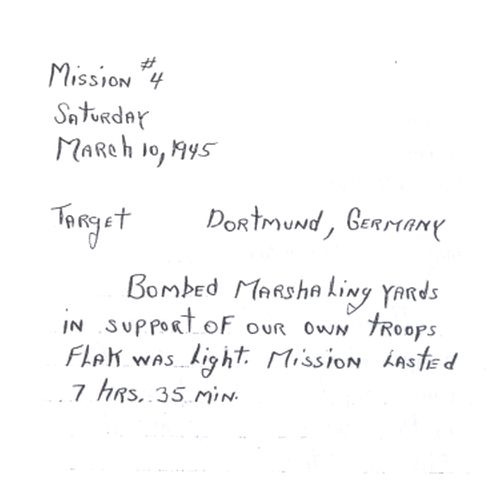 Mission #4
Saturday
March 10, 1945
Target Dortmund, Germany
Bombed Marshaling yards
in support of our own troops
Flak was light. Mission lasted
7 hrs. 35 min.